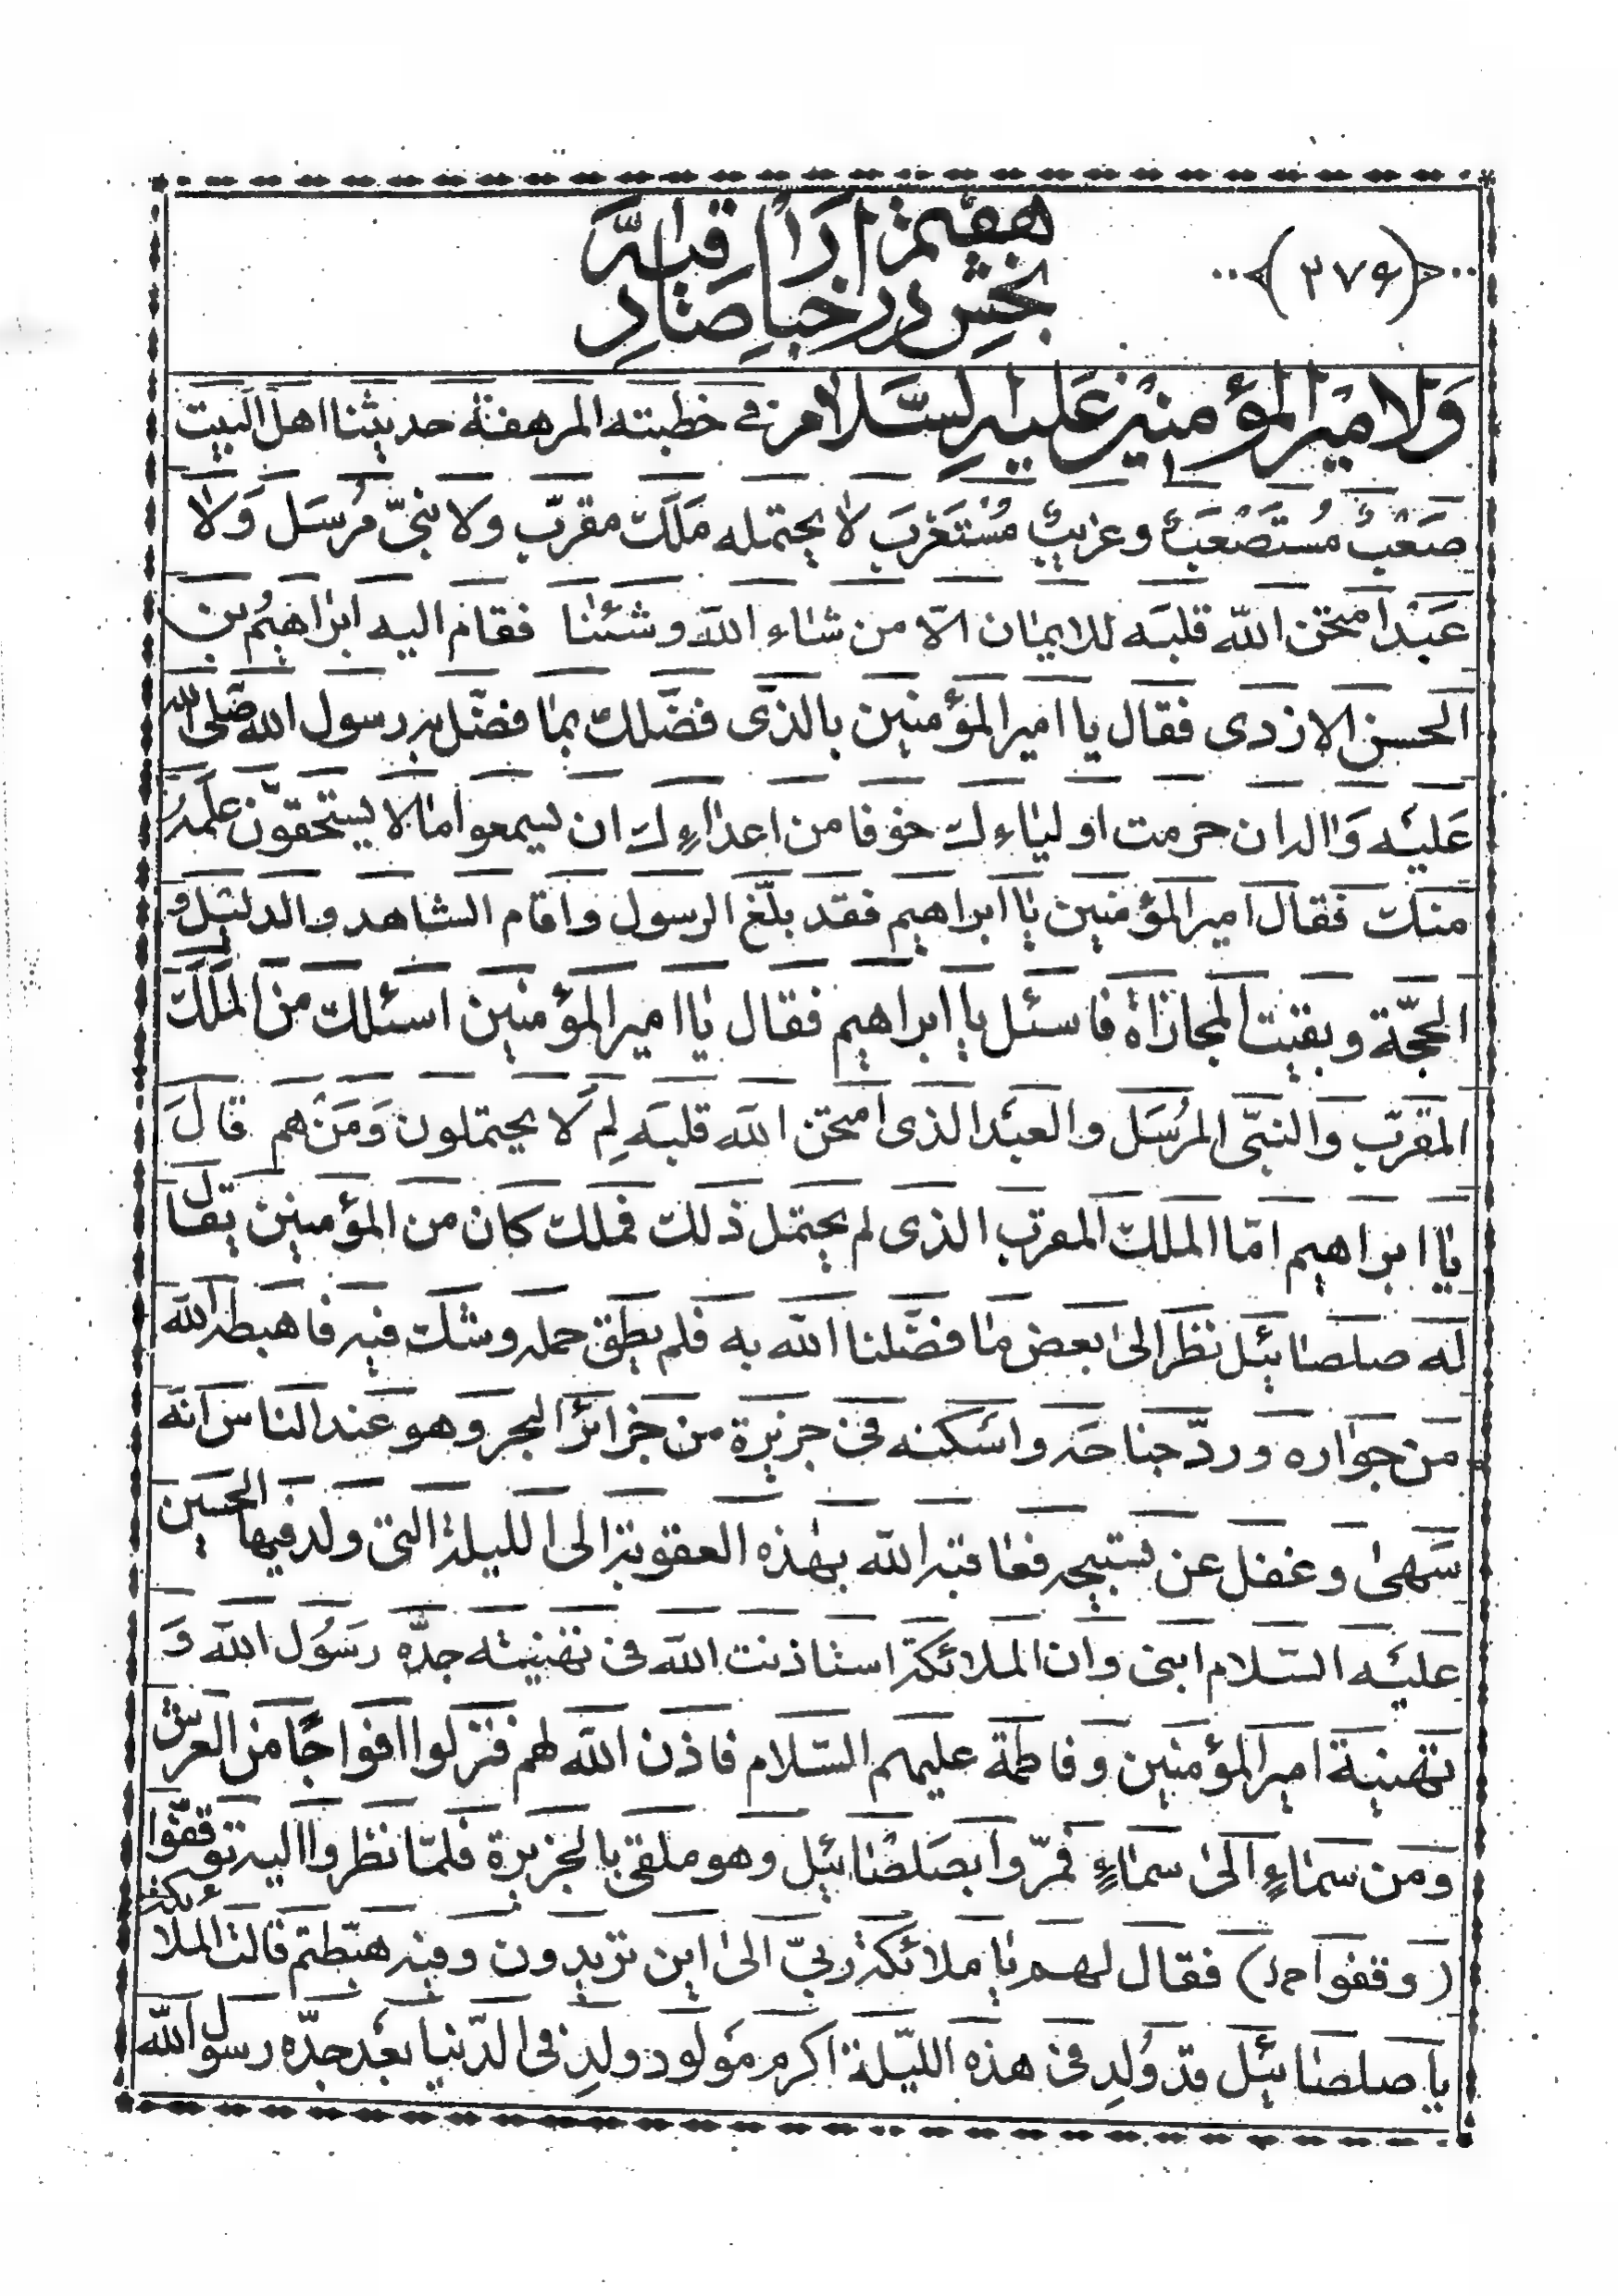 (۳۷۶)
هفتم از اراقیه
بخش در اخبار صادر
وَلامیر المؤمنین عَلیه السَّلام فی خطبته المرهفة حدیثنا اهل البیت
صَعْبٌ مُستَصْعَبٌ وغریبٌ مُسْتَغْرَبَ لا یحتمله مَلَك مقرّب ولا نبیّ مُرسَل وَلا
عَبْد امتحن الله قلبَه للایمان الّا من شاء الله وشئنا فقام الیه ابراهیمُ بن
الحسن الازدی فقال یا امیر المؤمنین بالذی فضّلك بما فضّل به رسول الله صلی الله
عَلیْه وَاله ان حرمت اولیاءك خوفا من اعداءِك ان یسمعوا ما لا یستحقّون علمه
منك فقال امیر المؤمنین یا ابراهیم فقد بلّغ الرسول واقام الشاهد والدلیل و
الحجّة وبقیت المجازاة فاسئل یا ابراهیم فقال یا امیر المؤمنین اسئلك من المَلَك
المقرّب والنبیّ المرُسَل والعبْد الذی امتحن الله قلبَه لِمَ لا یحتملون وَمَنْ هم قالَ
یا ابراهیم امّا الملك المقرّب الذی لم یحتمل ذلك فملك كان من المؤمنین یقال
لَه صلصائیل نظر الی بعض ما فضّلنا الله به فلم یطق حمله وشك فیه فاهبطه الله
من جواره وردّ جناحَه واسكنه فی جزیرة من جزائر البحر وهو عند الناس انّه
سَهی وغفل عن تسبیحه فعاقبه الله بهذه العقوبة الی اللیلة التی ولد فیها الحسین
علیْه السّلام ابنی وان الملائكة استاذنت الله فی تهنیته جدّه رسُول الله وَ
تهنیة امیر المؤمنین وفاطمة علیهم السّلام فاذن الله لهم فنزلوا افواجًا من العرش
ومن سماءٍ الی سماءٍ فمرّوا بصَلصائیل وهو ملقی بالجزیرة فلمّا نظروا الیه توقفّوا
(وقفوا خ‌ل) فقال لهم یا ملائكة ربیّ الی این تریدون وفیه هبّطتم قالت الملائكة
یا صلصائیل قد وُلِد فی هذه اللیّلة اكرم موْلود ولِد فی الدّنیا بعْد جدّه رسول الله